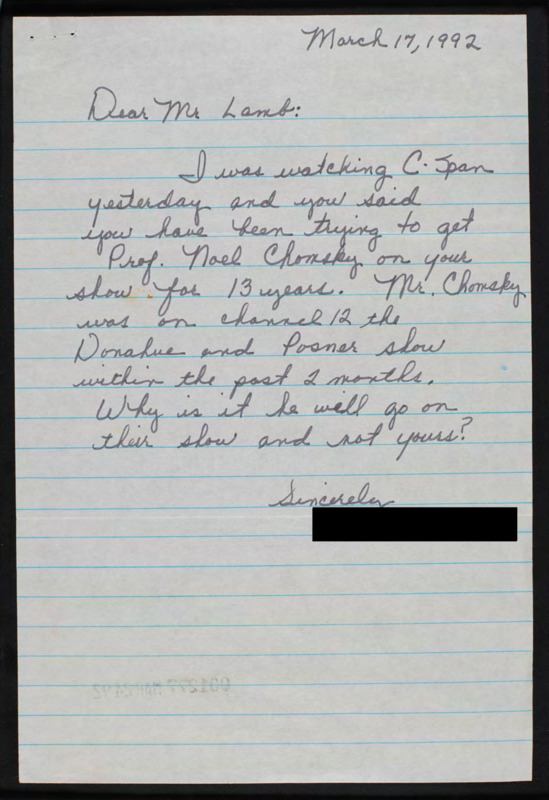 March 17, 1992
Dear Mr Lamb:
I was watching C-Span
yesterday and you said
you have been trying to get
Prof. Noel Chomsky on your
show for 13 years. Mr. Chomsky
was on channel 12 the
Donahue and Posner show
within the past 2 months.
Why is it he will go on
their show and not yours?
Sincerely